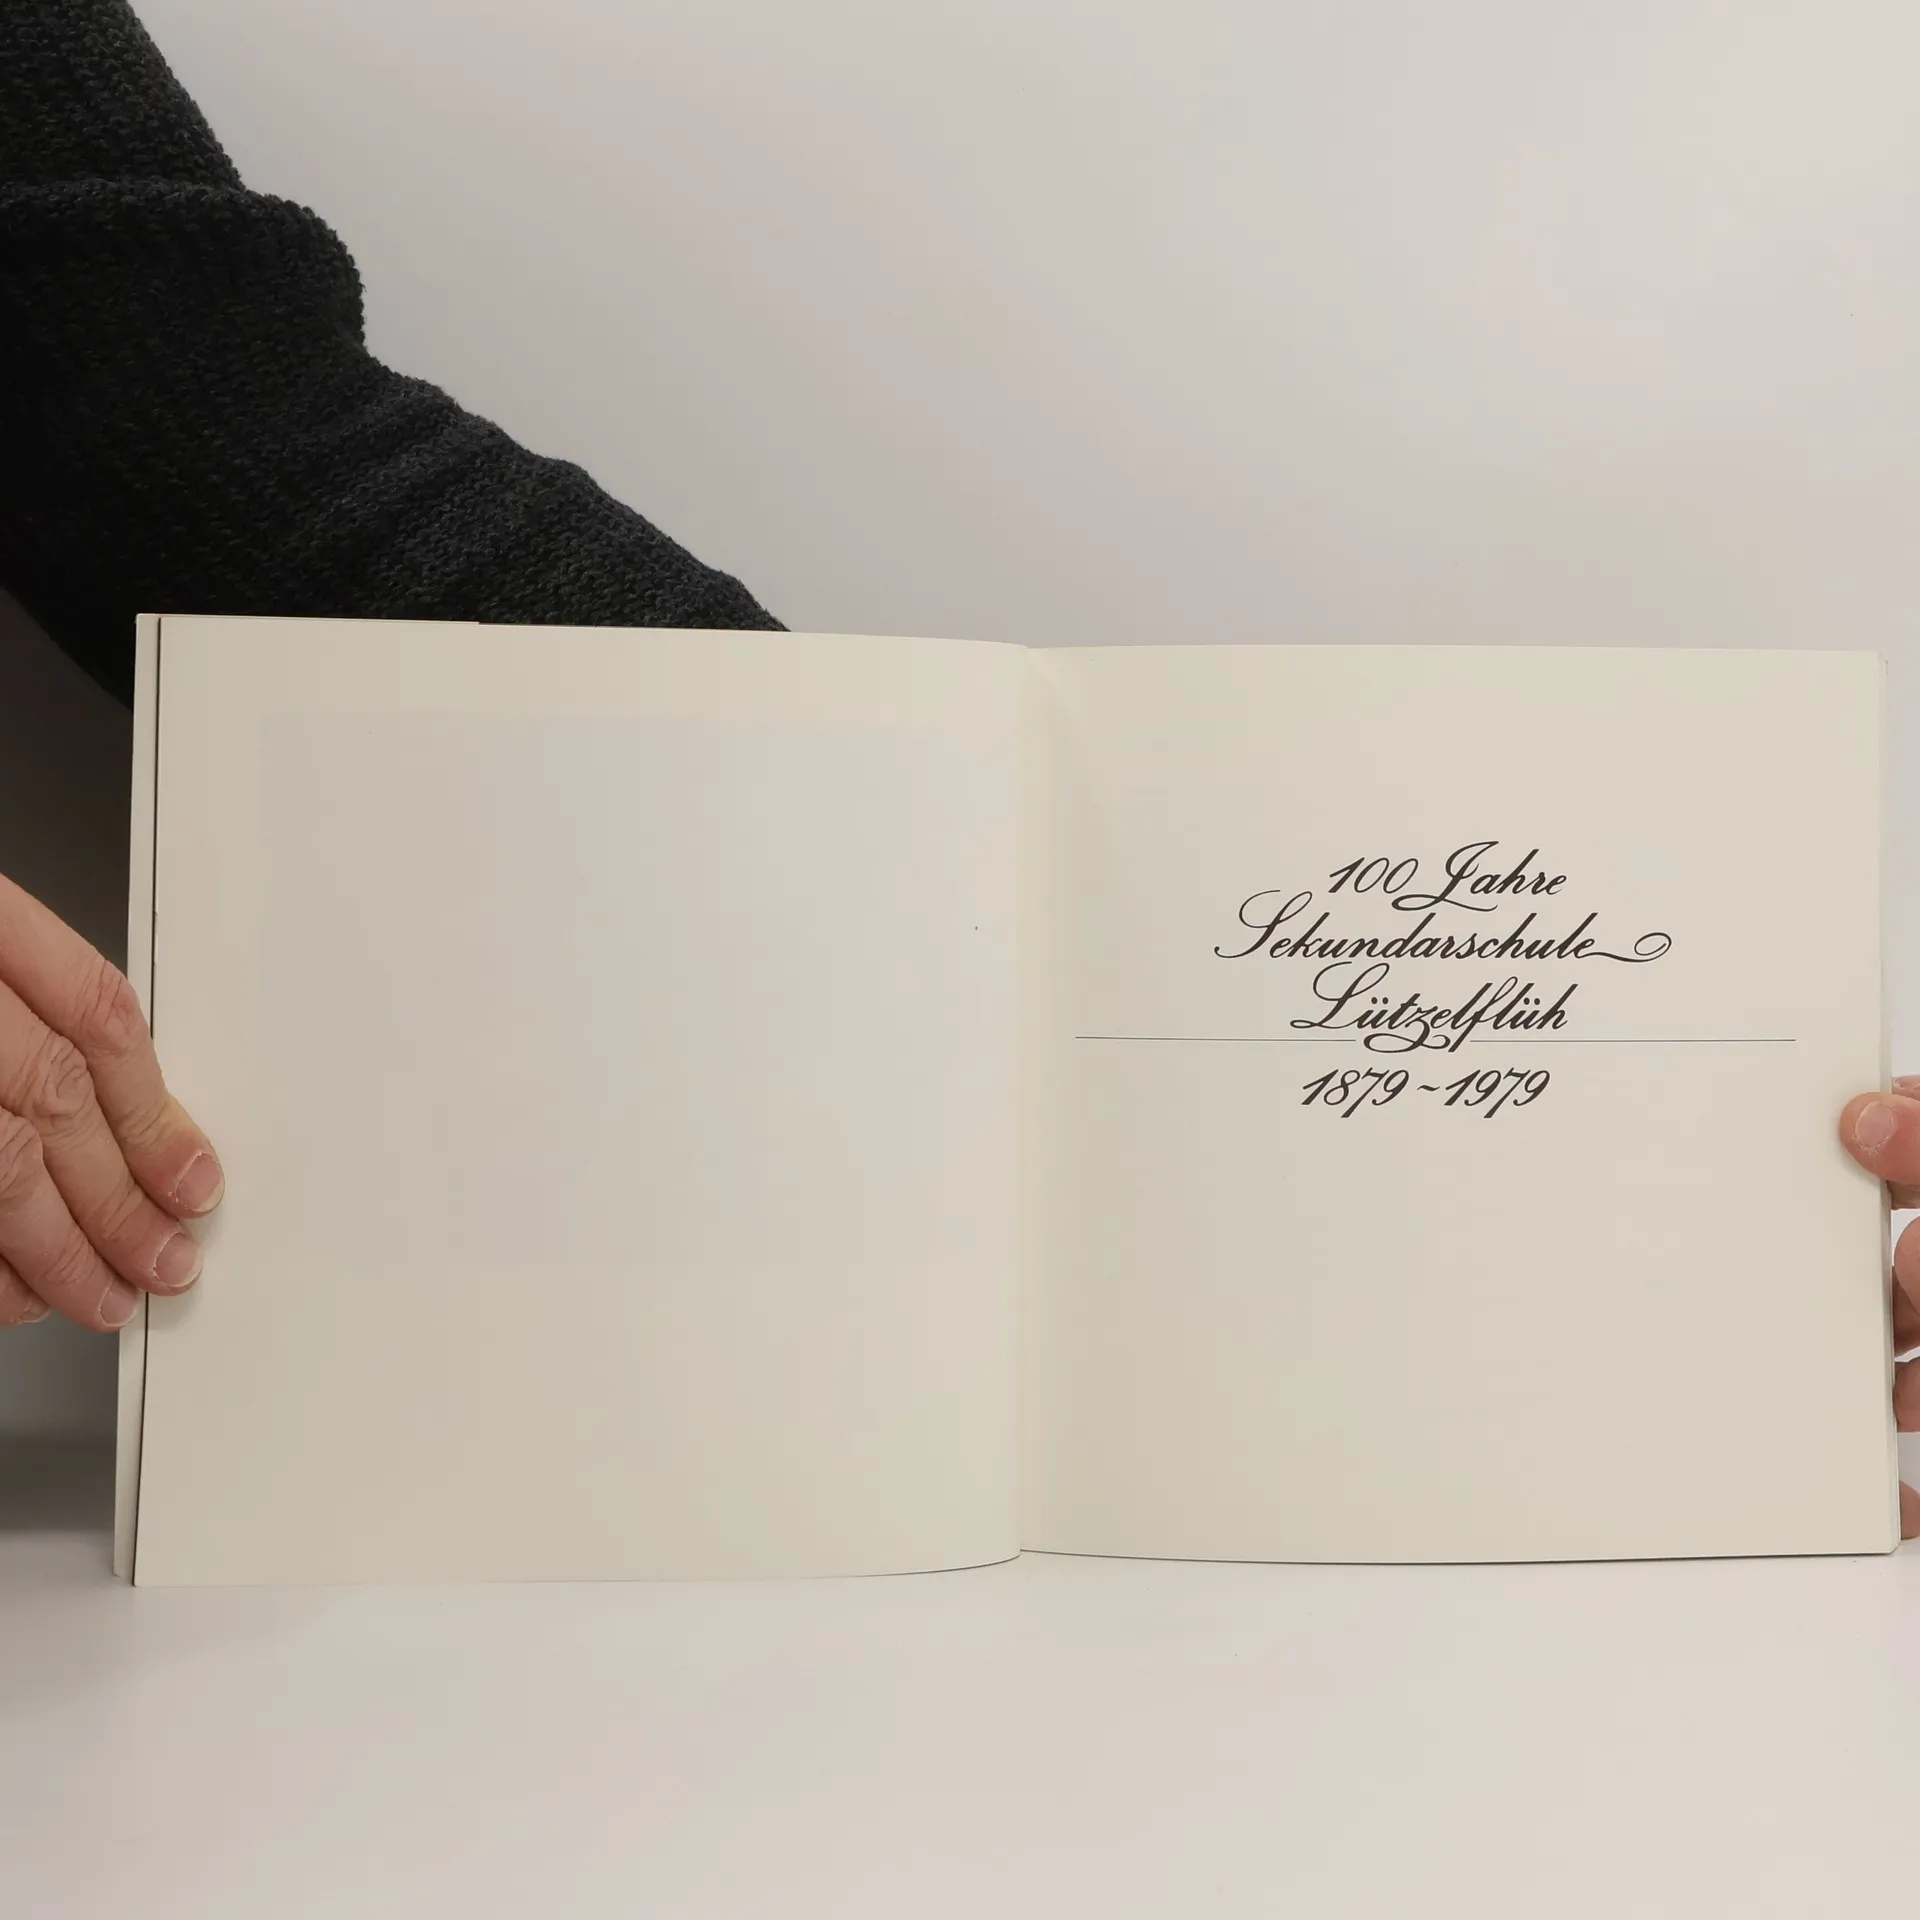 100 Jahre
Sekundarschule
Lützelflüh
1879~1979